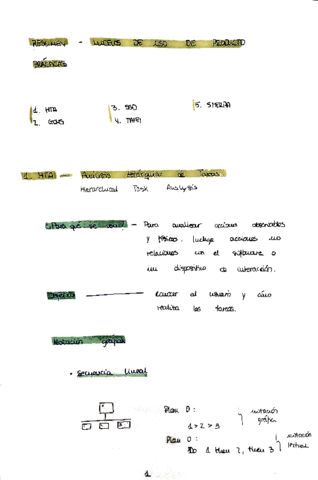 RESUMEN - MODELOS DE USO DE PRODUCTO
PRÁCTICAS
1. HTA
3. SBD
5. SHERPA
2. GOMS
4. TAFEI
1. HTA — Análisis Jerárquico de Tareas
Hierarchical Task Analysis
¿Para qué se usa? — Para analizar acciones observables
y físicas. Incluye acciones no
relaciones con el software o
un dispositivo de interacción.
Objetivo — Evaluar al usuario y cómo
realiza las tareas.
Notación gráfica
• Secuencia lineal
Plan 0:
1 > 2 > 3
notación
gráfica
Plan 0:
Do 1 then 2, then 3
notación
textual
1